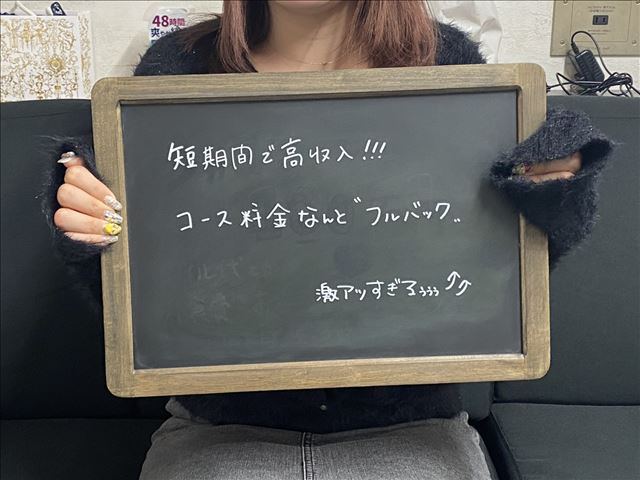 48時間
短期間で高収入!!!
コース料金なんと"フルバック"
激アツすぎるぅぅぅ⤴⤴